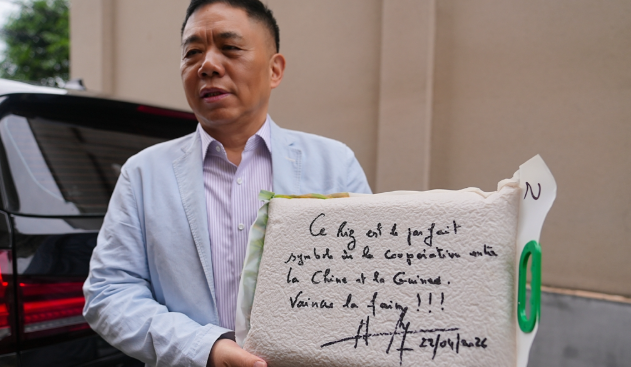 Ce Riz est le parfait
symbole de la coopération entre
la Chine et la Guinée.
Vaincre la faim !!!
22/04/2026
N